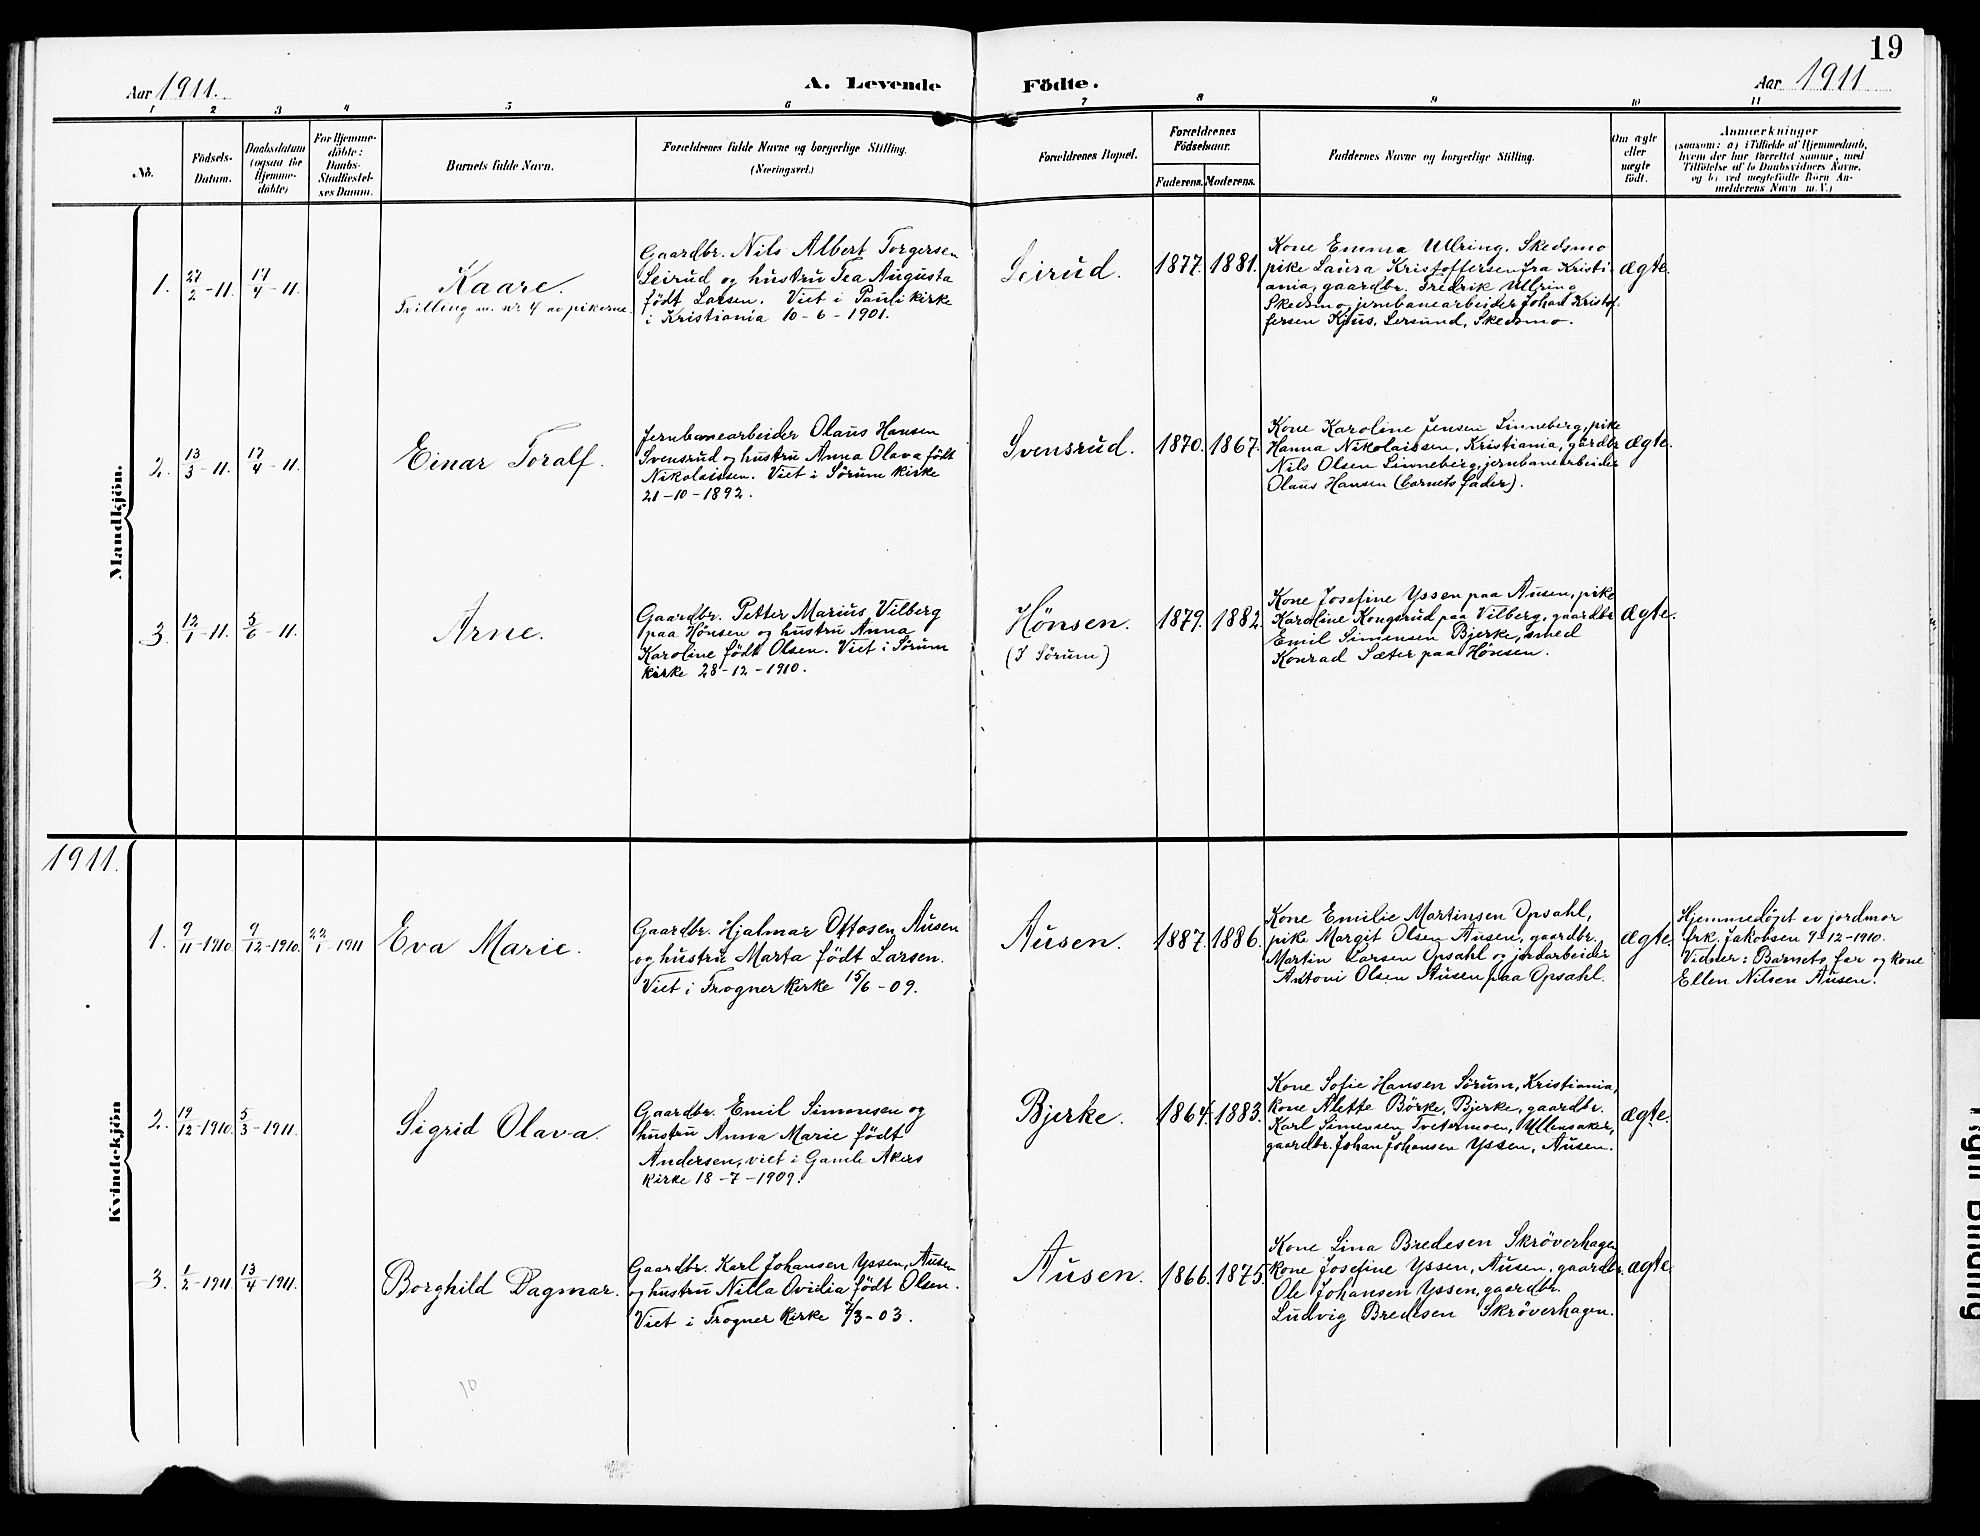 19
Aar 1911.
A. Levende
Födte.
Aar 1911
1 2 3 4 5 6 7 8 9 10 11
No.
Födsels-
Datum.
Daabsdatum
(ogsaa for
Hjemme-
döbte)
For Hjemme-
döbte:
Daabs-
Stadfæstel-
ses Datum.
Barnets fulde Navn.
Forældrenes fulde Navne og borgerlige Stilling.
(Næringsvei.)
Forældrenes Bopæl.
Forældrenes
Födselsaar.
Faderens. Moderens.
Faddernes Navne og borgerlige Stilling.
Om ægte
eller
uægte
født.
Anmærkninger
(saasom: a) i Tilfælde af Hjemmedaab,
hvem der har forrettet samme, med
Tilföielse af to Daabsvidners Navne,
og b) ved uægtefödte Börn An-
melderens Navn m. V.)
Mandkjön.
1.
27/2 - 11.
17/4 - 11.
Kaare.
Tvilling m. nr. 4 av pikerne.
Gaardbr. Nils Albert Torgersen
Seirud og hustru Tea Augusta
født Larsen. Viet i Pauli kirke
i Kristiania 10-6-1901.
Seirud.
1877. 1881.
Kone Emma Ullring, Skedsmo
pike Laura Kristoffersen fra Kristi-
ania, gaardbr. Fredrik Ullring
Skedsmo, jernbanearbeider Johan Kristof-
fersen Kjus, Lersund, Skedsmo.
ægte.
2.
13/3 - 11.
17/4 - 11.
Einar Toralf.
Jernbanearbeider Olaus Hansen
Svensrud og hustru Anna Olava født
Nikolaissen. Viet i Sörum kirke
21-10-1892.
Svensrud.
1870. 1867.
Kone Karoline Jensen Linneberg, pike
Hanna Nikolaissen, Kristiania, gardbr
Nils Olsen Linneberg, jernbanearbeider
Olaus Hansen (barnets fader).
ægte.
3.
12/1 - 11.
5/6 - 11.
Arne.
Gaardbr. Petter Marius Vilberg
paa Hönsen og hustru Anna
Karoline født Olsen. Viet i Sörum
kirke 28-12-1910.
Hönsen.
(I Sörum)
1879. 1882.
Kone Josefine Yssen paa Ausen, pike
Karoline Kongsrud paa Vilberg, gaardbr
Emil Simensen Bjerke, smed
Konrad Sæter paa Hönsen.
ægte.
1911.
Kvindekjön
1.
9/11-1910.
9/12-1910.
22/1-1911
Eva Marie.
Gaardbr. Hjalmar Ottosen Ausen
og hustru Marta født Larsen.
Viet i Frogner kirke 15/6-09.
Ausen.
1887. 1886.
Kone Emilie Martinsen Opsahl,
pike Margit Olsen Ausen, gaardbr.
Martin Larsen Opsahl og jordarbeider
Antoni Olsen Ausen paa Opsahl.
ægte.
Hjemmedöpt ev jordmor
frk. Jakobsen 9-12-1910.
Vidner: Barnets far og kone
Ellen Nilsen Ausen.
2.
19/12-1910.
5/3-1911.
Sigrid Olava.
Gaardbr. Emil Simonsen og
hustru Anna Marie født
Andersen, viet i Gamle Akers
kirke 18-7-1909.
Bjerke.
1864. 1883.
Kone Sofie Hansen Sörum, Kristiania,
kone Alette Börke, Bjerke, gaardbr.
Karl Simensen Tvetermoen, Ullensaker,
gaardbr. Johan Johansen Yssen, Ausen.
ægte.
3.
1/2-1911.
13/4-1911.
Borghild Dagmar.
Gaardbr. Karl Johansen Yssen, Ausen
og hustru Nilla Ovidia født Olsen.
Viet i Frogner kirke 7/3-03.
Ausen.
1866. 1875.
Kone Lina Bredesen Skröverhagen
kone Josefine Yssen, Ausen, gaardbr.
Ole Johansen Yssen, gaardbr.
Ludvig Bredesen Skröverhagen.
ægte.
10